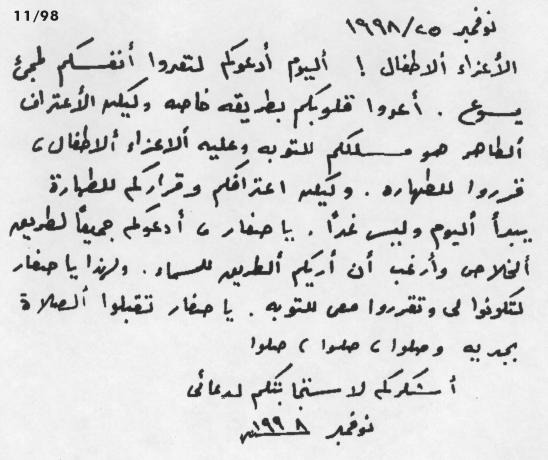 11/98
نوفمبر ٢٥/١٩٩٨
الأعزاء ألاطفال ! أليوم أدعوكم لتعدوا أنفسكم لمجئ
يسوع . أعدوا قلوبكم بطريقه خاصه وليكن الأعتراف
ألطاهر هو مسلككم للتوبه وعليه ألاعزاء ألاطفال ،
قرروا للطهاره . وليكن اعترافكم وقراركم للطهارة
يبدأ أليوم وليس غدًا . ياصغار ، أدعوكم جميعًا لطريق
ألخلاص وأرغب أن أريكم ألطريق للسماء . ولهذا ياصغار
لتكونوا لى وتقرروا معى للتوبه . ياصغار تقبلوا ألصلاة
بجديه وصلوا ، صلوا ، صلوا
أشكركم لاستجابتكم لدعائى
نوفمبر ١٩٩٨